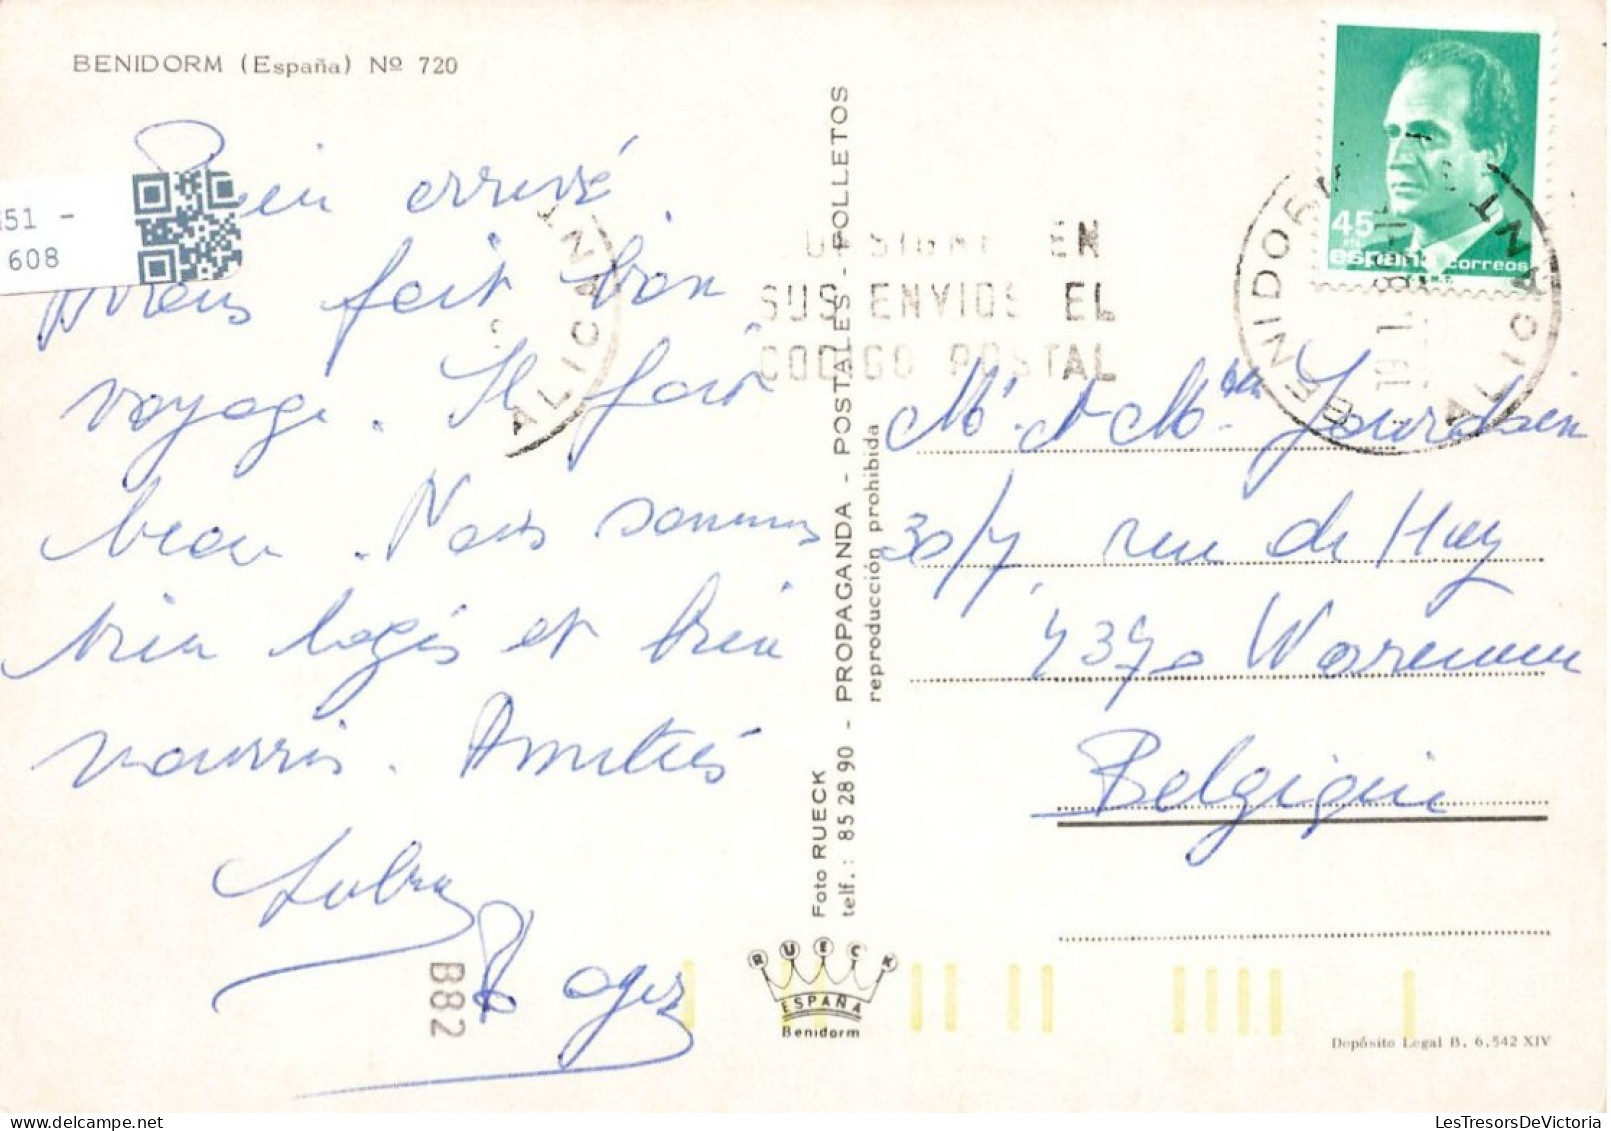 BENIDORM (España) Nº 720
51 -
608
Bien arrivé.
Avons fait bon
voyage. Il fait
beau. Nous sommes
bien logés et bien
nourris. Amitiés
Roger
B82
Foto RUECK
telf.: 85 28 90 - PROPAGANDA - POSTALES - FOLLETOS
reproducción prohibida
RUECK
ESPAÑA
Benidorm
EN
SUS ENVIOS EL
CODIGO POSTAL
ALICANT
BENIDORM
ALICANT
45
PTA
españa correos
Mr. et Mme Jourdain
30/7, rue de Huy
4370 Waremme
Belgique
Depósito Legal B. 6.542 XIV
LesTresorsDeVictoria.com